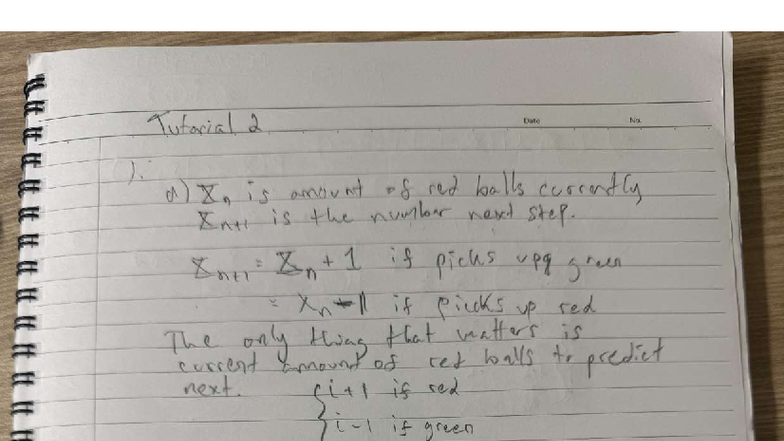 Tutorial 2
Date No.
1.
a) X_n is amount of red balls currently
X_{n+1} is the number next step.
X_{n+1} = X_n + 1 if picks up a green
= X_n - 1 if picks up red
The only thing that matters is
current amount of red balls to predict
next. { i+1 if red
i-1 if green